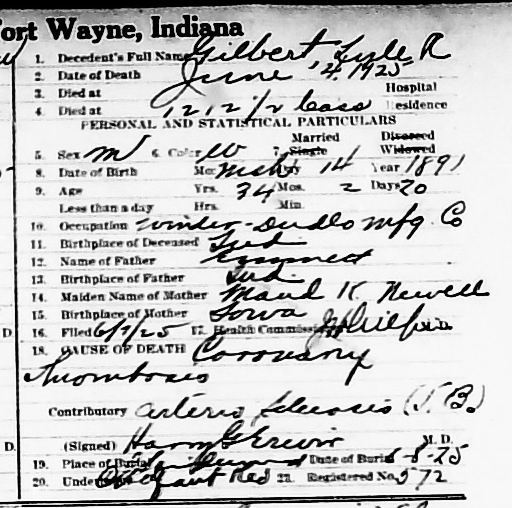 ort Wayne, Indiana
1. Decedent's Full Name Gilbert, Lyle R
2. Date of Death June 4, 1925
3. Died at Hospital
4. Died at 1212 1/2 Cass Residence
PERSONAL AND STATISTICAL PARTICULARS
Married Divorced
5. Sex M 6. Color W 7. Single Widowed
8. Date of Birth Mo. Mch Day 14 Year 1891
9. Age Yrs. 34 Mos. 2 Days 20
Less than a day Hrs. Min.
10. Occupation Winder-Dudlo Mfg. Co
11. Birthplace of Deceased Ind
12. Name of Father Emmet
13. Birthplace of Father Ind.
14. Maiden Name of Mother Maud K. Newell
15. Birthplace of Mother Iowa
D 16. Filed 6/7/25 17. Health Commissioner
18. CAUSE OF DEATH Coronary
Thrombosis
Contributory Arterio Sclerosis (T.B.)
(Signed) Harry G Erwin M. D.
D. 19. Place of Burial Date of Burial 6-8-25
20. Undertaker 21. Registered No. 572